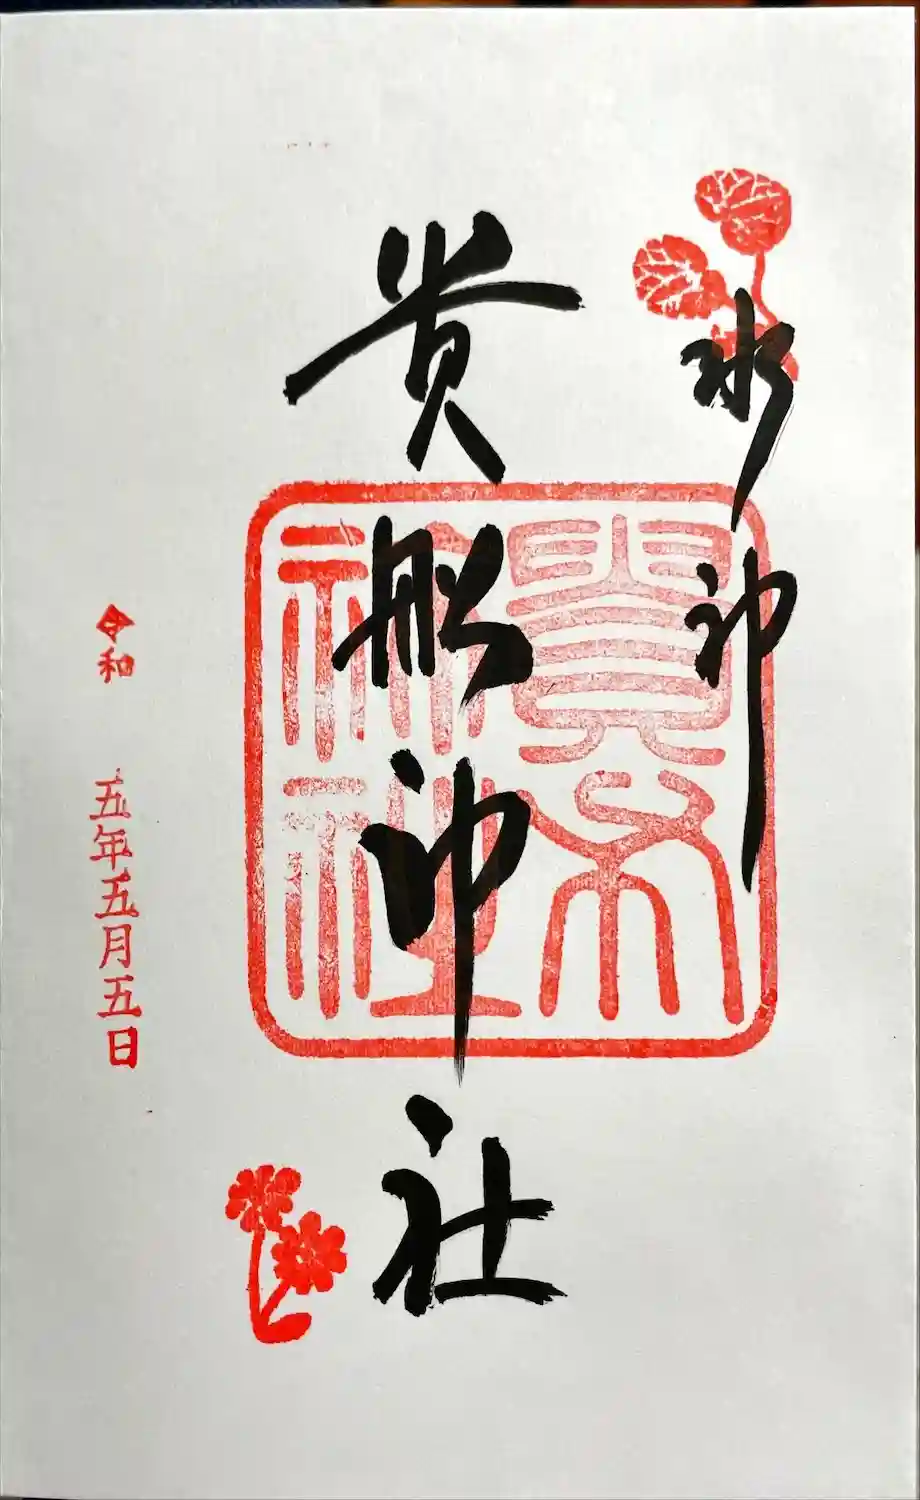 水神
貴船神社
貴布
祢社
令和 五年五月五日